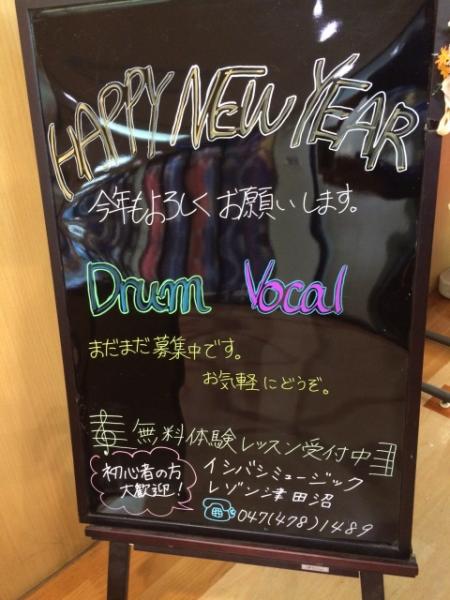 HAPPY NEW YEAR
今年もよろしくお願いします。
Drum Vocal
まだまだ募集中です。
お気軽にどうぞ。
無料体験レッスン受付中
初心者の方
大歓迎!
イシバシミュージック
レゾン津田沼
047(478)1489